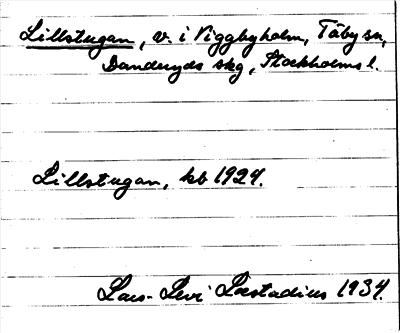 Lillstugan, v. i Viggbyholm, Täby sn,
Danderyds skg, Stockholms l.
Lillstugan, kb 1924.
Lars-Levi Læstadius 1934.